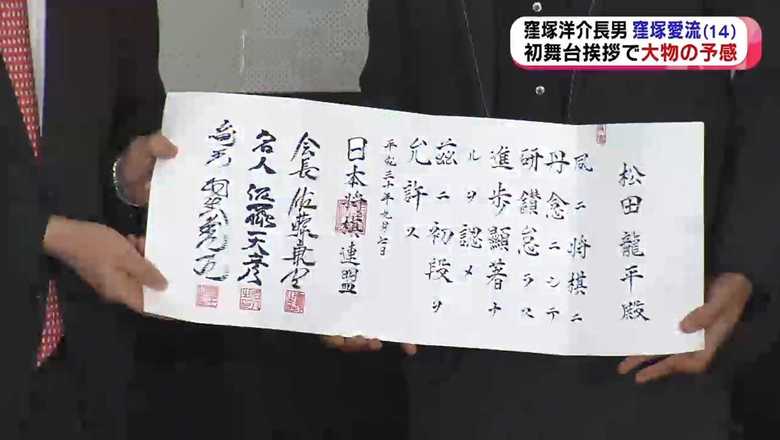 窪塚洋介長男 窪塚愛流(14)
初舞台挨拶で大物の予感
松田龍平殿
夙ニ将棋ニ
丹念ニシテ
研鑽怠ラス
進歩顕著ナ
ルヲ認メ
茲ニ初段ヲ
允許ス
平成三十年九月七日
日本将棋連盟
会長 佐藤康光
名人 佐藤天彦
竜王 羽生善治